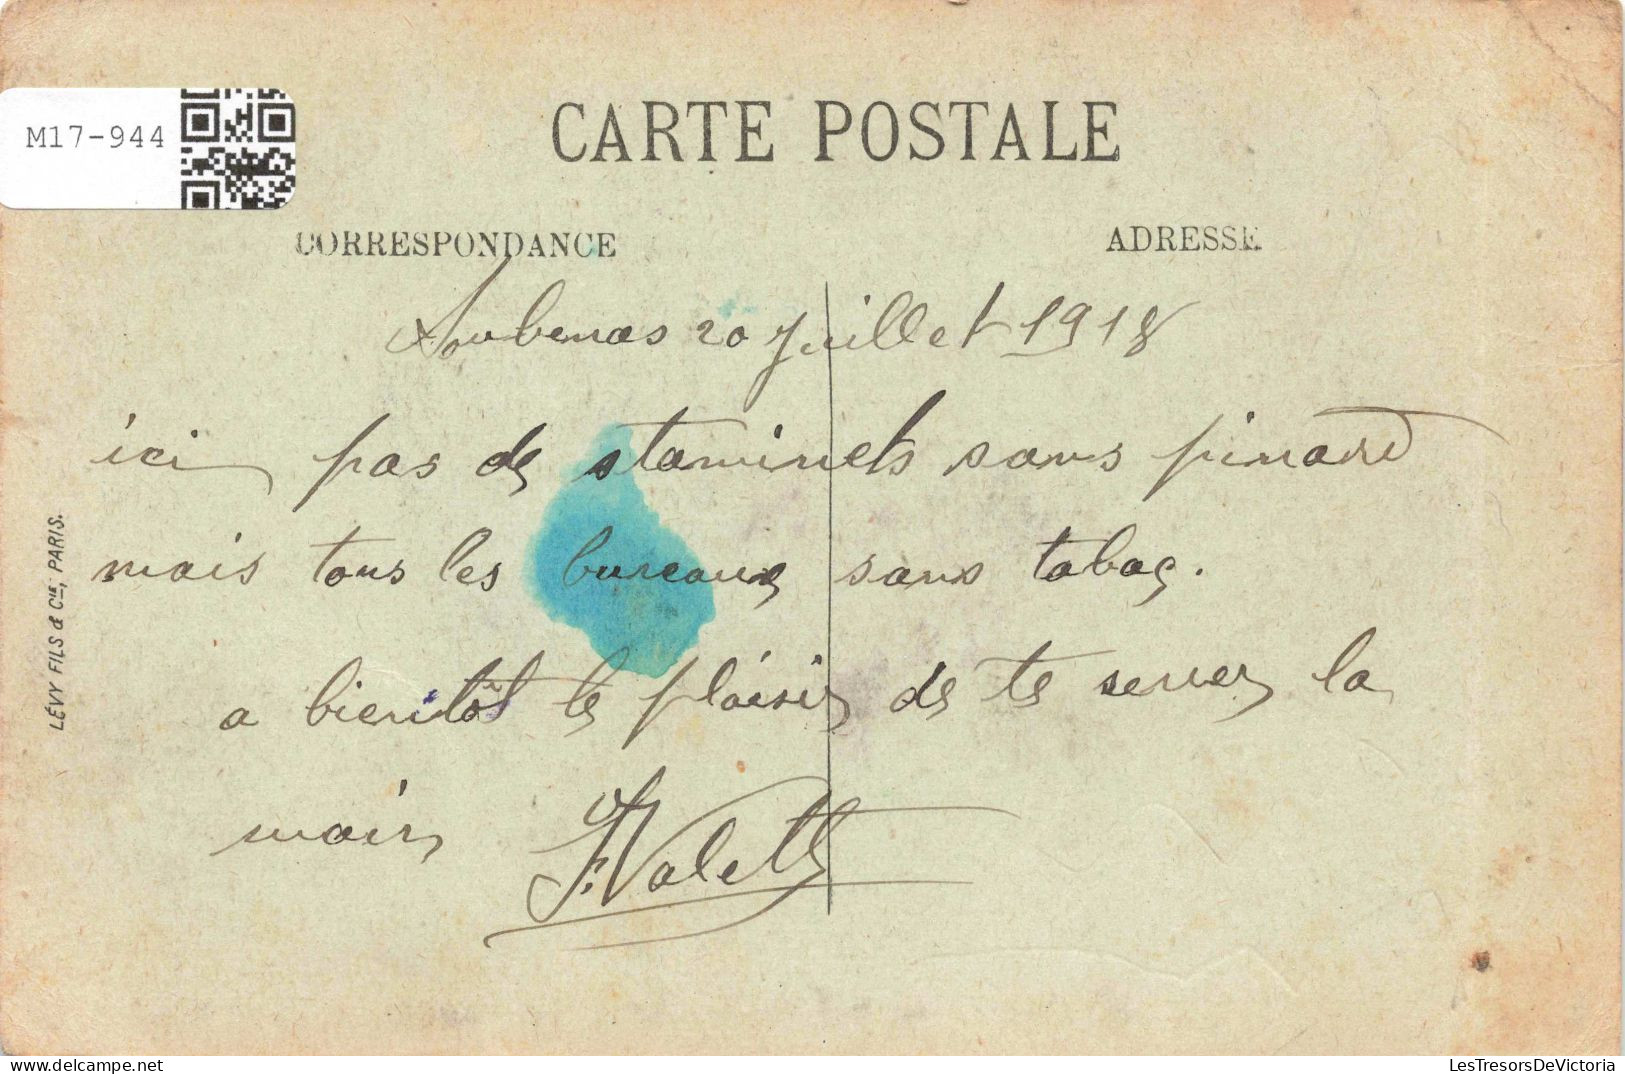 M17-944
CARTE POSTALE
CORRESPONDANCE
ADRESSE
20 Juillet 1918
ici pas de staminets sans pinard
mais tous les bureaux sans tabac.
a bientôt le plaisir de te serrer la
main
F. Valett
LÉVY FILS & Cie, PARIS.
LesTresorsDeVictoria